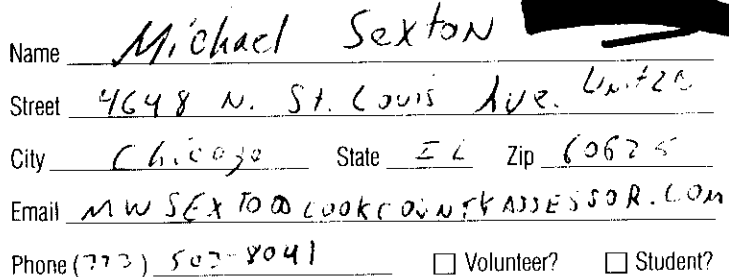 Name Michael Sexton
Street 4648 N. St. Louis Ave.
City Chicago State IL Zip 60625
Email MWSEXTO@COOKCOUNTYASSESSOR.COM
Phone (773) 507-8041 Volunteer? Student?